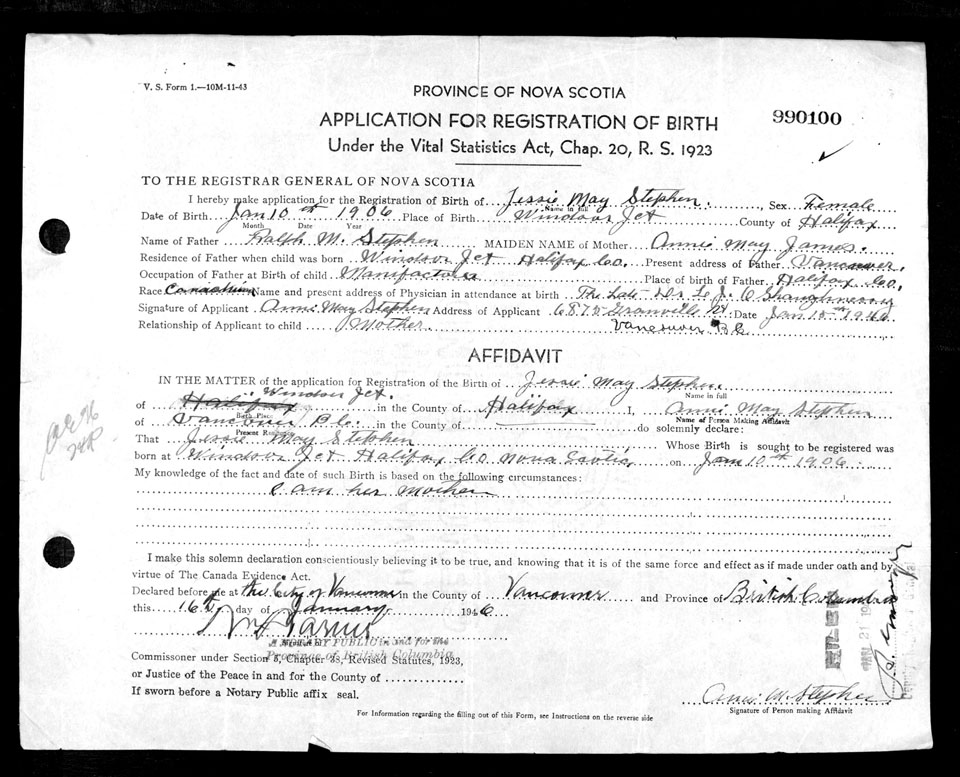 V. S. Form 1.—10M-11-43
PROVINCE OF NOVA SCOTIA
APPLICATION FOR REGISTRATION OF BIRTH
990100
Under the Vital Statistics Act, Chap. 20, R. S. 1923
TO THE REGISTRAR GENERAL OF NOVA SCOTIA
I hereby make application for the Registration of Birth of Jessie May Stephen. Sex Female
Name in full
Date of Birth Jan 10th 1906 Place of Birth Windsor Jct County of Halifax
Month Date Year
Name of Father Ralph M. Stephen MAIDEN NAME of Mother Annie May James.
Residence of Father when child was born Windsor Jct Halifax Co. Present address of Father Vancouver.
Occupation of Father at Birth of child Place of birth of Father, Halifax Co.
Race Canadian Name and present address of Physician in attendance at birth The Late Dr
Signature of Applicant Annie May Stephen Address of Applicant 6875 Granville St Date Jan 15th 1946
Relationship of Applicant to child Mother. Vancouver B.C.
AFFIDAVIT
IN THE MATTER of the application for Registration of the Birth of Jessie May Stephen
Name in full
Windsor Jct.
of Halifax in the County of Halifax I, Annie May Stephen
Birth Place Name of Person Making Affidavit
of Vancouver B.C. in the County of do solemnly declare:
Present Residence
That Jessie May Stephen Whose Birth is sought to be registered was
born at Windsor Jct Halifax Co Nova Scotia on Jan 10th 1906
My knowledge of the fact and date of such Birth is based on the following circumstances:
I am her mother
I make this solemn declaration conscientiously believing it to be true, and knowing that it is of the same force and effect as if made under oath and by
virtue of The Canada Evidence Act.
Declared before me at the City of Vancouver in the County of Vancouver and Province of British Columbia
this 16th day of January 1946
A NOTARY PUBLIC in and for the
Province of British Columbia
Commissioner under Section 3, Chapter 38, Revised Statutes, 1923,
or Justice of the Peace in and for the County of
If sworn before a Notary Public affix seal.
Annie M. Stephen
Signature of Person making Affidavit
For Information regarding the filling out of this Form, see Instructions on the reverse side
FILED